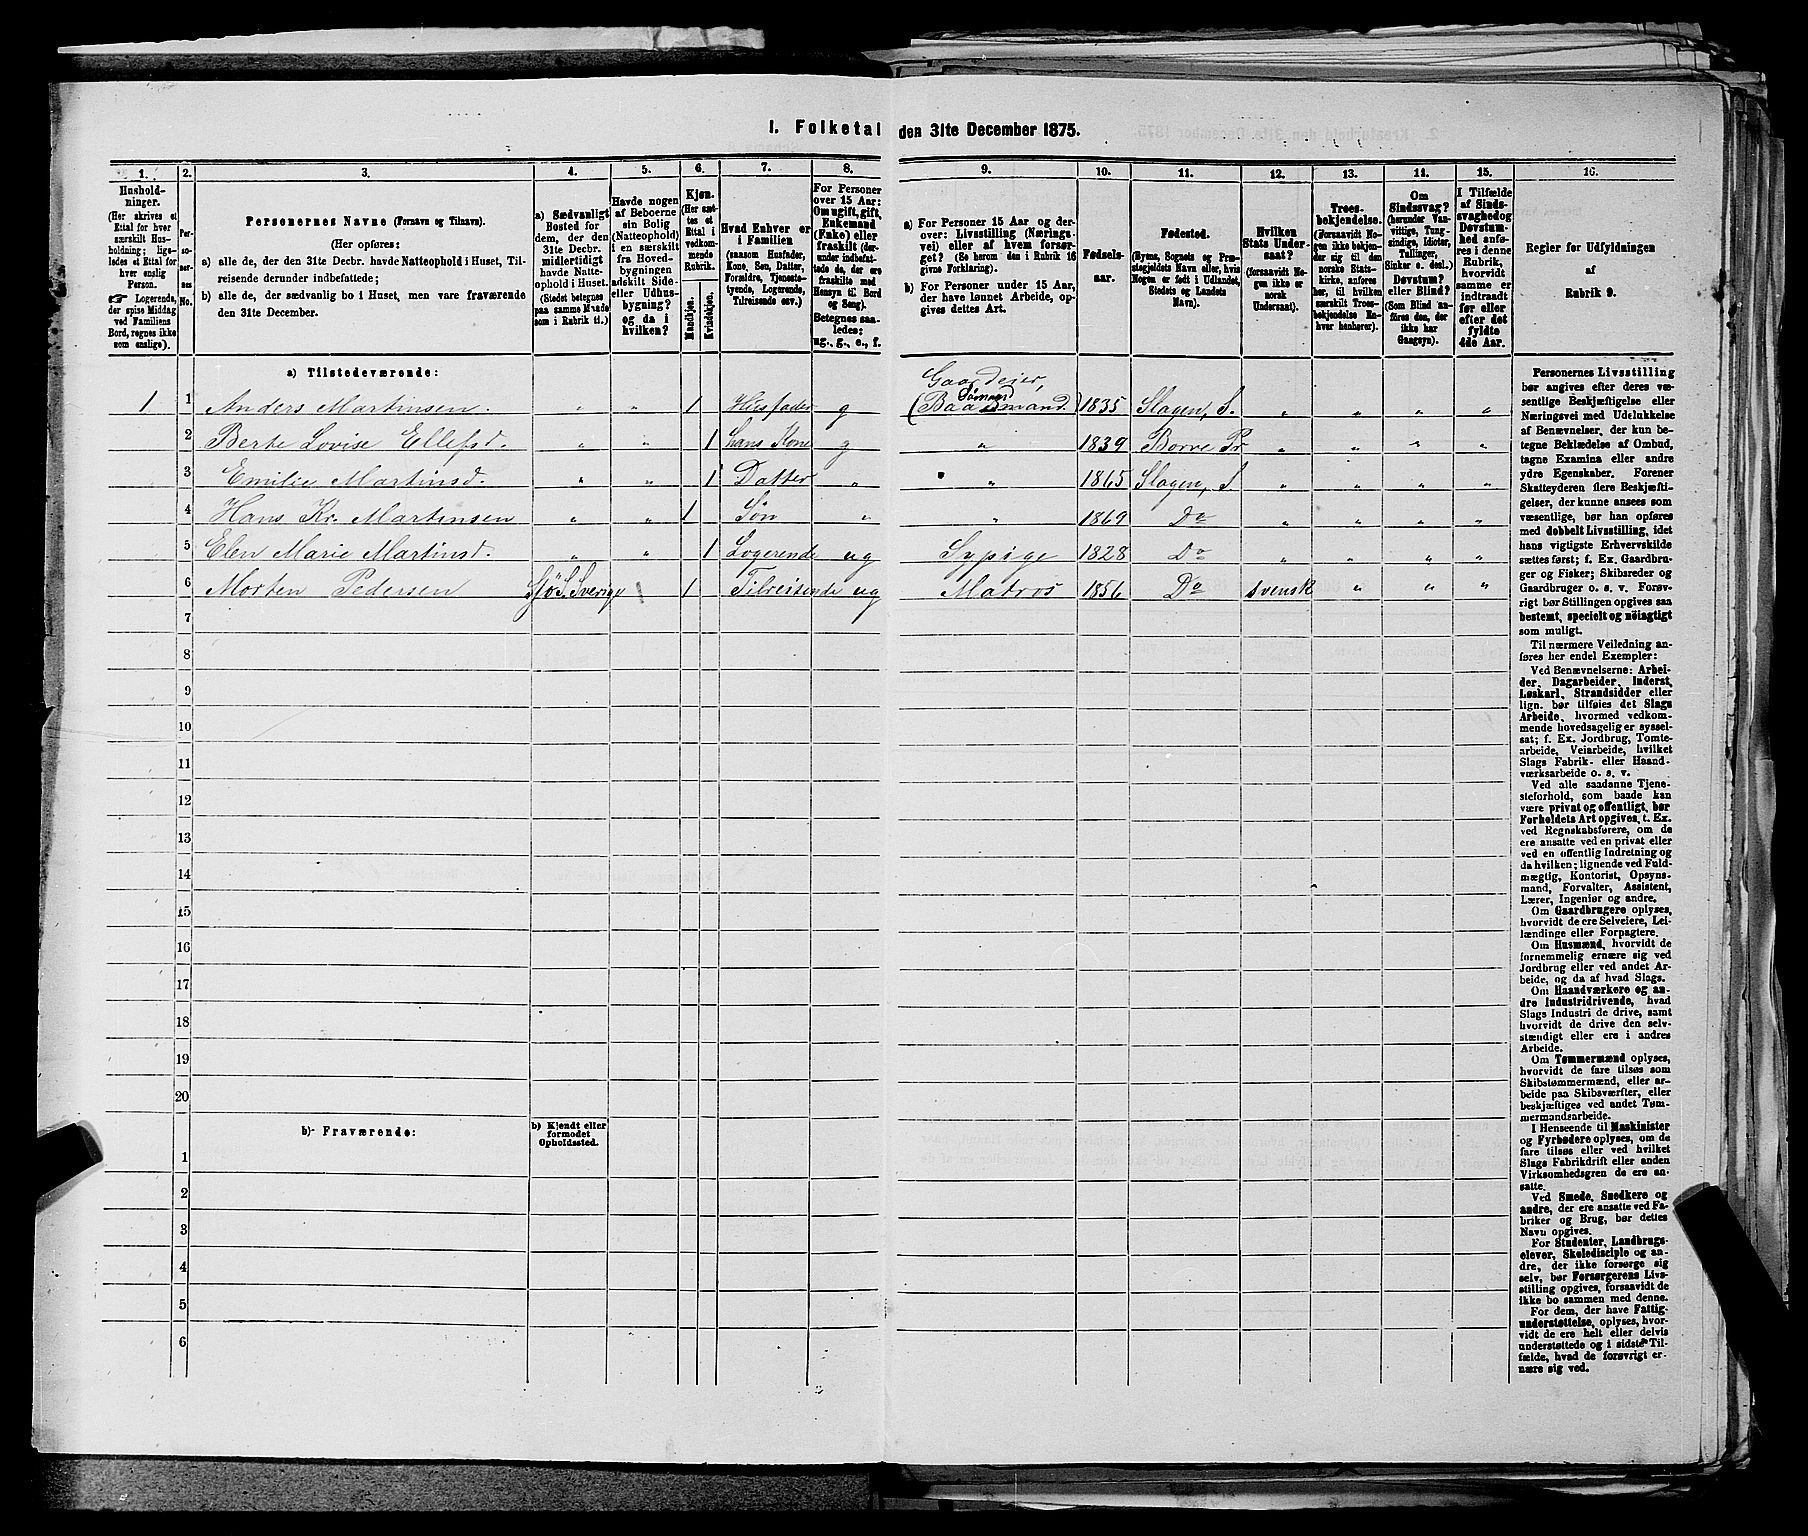 I. Folketal den 31te December 1875.
1. 2. 3. 4. 5. 6. 7. 8. 9. 10. 11. 12. 13. 14. 15. 16.
Husholdninger.
(Her skrives et
Ettal for hver
særskilt Husholdning; ligeledes et Ettal for
hver enslig
Person.
☞ Logerende,
der spise Middag
ved Familiens
Bord, regnes ikke
som enslige).
Personernes No.
Personernes Navne (Fornavn og Tilnavn).
(Her opføres:
a) alle de, der den 31te Decbr. havde Natteophold i Huset, Tilreisende derunder indbefattede;
b) alle de, der sædvanlig bo i Huset, men vare fraværende
den 31te December.
a) Sædvanligt
Bosted for
dem, der den
31te Decbr.
midlertidigt
havde Natteophold i Huset.
(Stedet betegnes
paa samme Maade
som i Rubrik 11.)
Havde nogen
af Beboerne
sin Bolig
(Natteophold)
i en særskilt
fra Hovedbygningen
adskilt Side-
eller Udhusbygning?
og da i
hvilken?
Kjøn.
(Her sættes et
Ettal i
vedkommende
Rubrik.
Mandkjøn.
Kvindekjøn.
Hvad Enhver er
i Familien
(saasom Husfader,
Kone, Søn, Datter,
Forældre, Tjenestetyende, Logerende,
Tilreisende osv.)
For Personer
over 15 Aar:
Om ugift, gift,
Enkemand
(Enke) eller
fraskilt (derunder indbefattede de, der ere
fraskilte med
Hensyn til Bord
og Seng).
Betegnes saaledes:
ug., g., e., f.
a) For Personer 15 Aar og derover: Livsstilling (Næringsvei) eller af hvem forsørget? (Se herom den i Rubrik 16
givne Forklaring).
b) For Personer under 15 Aar,
der have lønnet Arbeide, opgives dettes Art.
Fødselsaar.
Fødested.
(Byens, Sognets og Præstegjeldets Navn eller, hvis
Nogen er født i Udlandet,
Stedets og Landets
Navn).
Hvilken
Stats Undersaat?
(forsaavidt Nogen ikke er
norsk
Undersaat).
Troesbekjendelse.
(Forsaavidt Nogen ikke bekjender sig til den
norske Statskirke, anføres
her, til hvilken
særskilt Troesbekjendelse Enhver henhører).
Om
Sindssvag?
(herunder Vanvittige, Tungsindige, Idioter,
Tullinger,
Sinker o. desl.)
Døvstum?
eller Blind?
(Som Blind anføres den, der
ikke har
Gangsyn).
I Tilfælde
af Sindssvaghed og
Døvstumhed anføres i denne
Rubrik,
hvorvidt
samme er
indtraadt
før eller
efter det
fyldte
4de Aar.
Regler for Udfyldningen
af
Rubrik 9.
a) Tilstedeværende:
Gaardeier,
Sømand
1 1 Anders Martinsen. „ „ 1 Husfader g (Baadsmand.) 1835 Slagen, S. „ „ „ „
2 Berte Lovise Ellefsd. „ „ 1 hans Kone g „ 1839 Borre Pr „ „ „ „
3 Emilie Martinsd. „ „ 1 Datter „ „ 1865 Slagen, S. „ „ „ „
4 Hans Kr. Martinsen „ „ 1 Søn „ „ 1869 Do „ „ „ „
5 Elen Marie Martinsd. „ „ 1 Logerende ug Sypige 1828 Do „ „ „ „
6 Morten Pedersen Sverige 1 Tilreisende ug Matros 1856 Do svensk „ „ „
7
8
9
10
11
12
13
14
15
16
17
18
19
20
b) Fraværende:
b) Kjendt eller
formodet
Opholdssted.
1
2
3
4
5
6
Personernes Livsstilling
bør angives efter deres væsentlige Beskjæftigelse eller
Næringsvei med Udelukkelse
af Benævnelser, der kun betegne Beklædelse af Ombud,
tagne Examina eller andre
ydre Egenskaber. Forener
Skatteyderen flere Beskjæftigelser, der kunne ansees som
væsentlige, bør han opføres
med dobbelt Livsstilling, idet
hans vigtigste Erhvervskilde
sættes først; f. Ex. Gaardbruger og Fisker; Skibsreder og
Gaardbruger o. s. v. Forøvrigt bør Stillingen opgives saa
bestemt, specielt og nöiagtigt
som muligt.
Til nærmere Veiledning anføres her endel Exempler:
Ved Benævnelserne: Arbeider, Dagarbeider, Inderst,
Løskarl, Strandsidder eller
lign. bør tilføies det Slags
Arbeide, hvormed vedkommende hovedsagelig er sysselsat; f. Ex. Jordbrug, Tomtearbeide, Veiarbeide, hvilket
Slags Fabrik- eller Haandværksarbeide o. s. v.
Ved alle saadanne Tjenesteforhold, som baade kan
være privat og offentligt, bør
Forholdets Art opgives, t. Ex.
ved Regnskabsførere, om de
ere ansatte ved en privat eller
ved en offentlig Indretning og
da hvilken; lignende ved Fuldmægtig, Kontorist, Opsynsmand, Forvalter, Assistent,
Lærer, Ingeniør og andre.
Om Gaardbrugere oplyses,
hvorvidt de ere Selveiere, Leilændinge eller Forpagtere.
Om Husmænd, hvorvidt de
fornemmelig ernære sig ved
Jordbrug eller ved andet Arbeide, og da af hvad Slags.
Om Haandværkere og andre Industridrivende, hvad
Slags Industri de drive, samt
hvorvidt de drive den selvstændigt eller ere i andres
Arbeide.
Om Tømmermænd oplyses,
hvorvidt de fare tilsøs som
Skibstømmermænd, eller arbeide paa Skibsværfter, eller
beskjæftiges ved andet Tømmermandsarbeide.
I Henseende til Maskinister
og Fyrbødere oplyses, om de
fare tilsøs eller ved hvilket
Slags Fabrikdrift eller anden
Virksomhedsgren de ere ansatte.
Ved Smede, Snedkere og
andre, der ere ansatte ved Fabriker og Brug, bør dettes
Navn opgives.
For Studenter, Landbrugselever, Skoledisciple og andre, der ikke forsørge sig
selv, bør Forsørgerens Livsstilling opgives, forsaavidt de
ikke bo sammen med denne.
For dem, der have Fattigunderstøttelse, oplyses, hvorvidt de ere helt eller delvis
understøttede og i sidste Tilfælde, hvad de forøvrigt ernære sig ved.